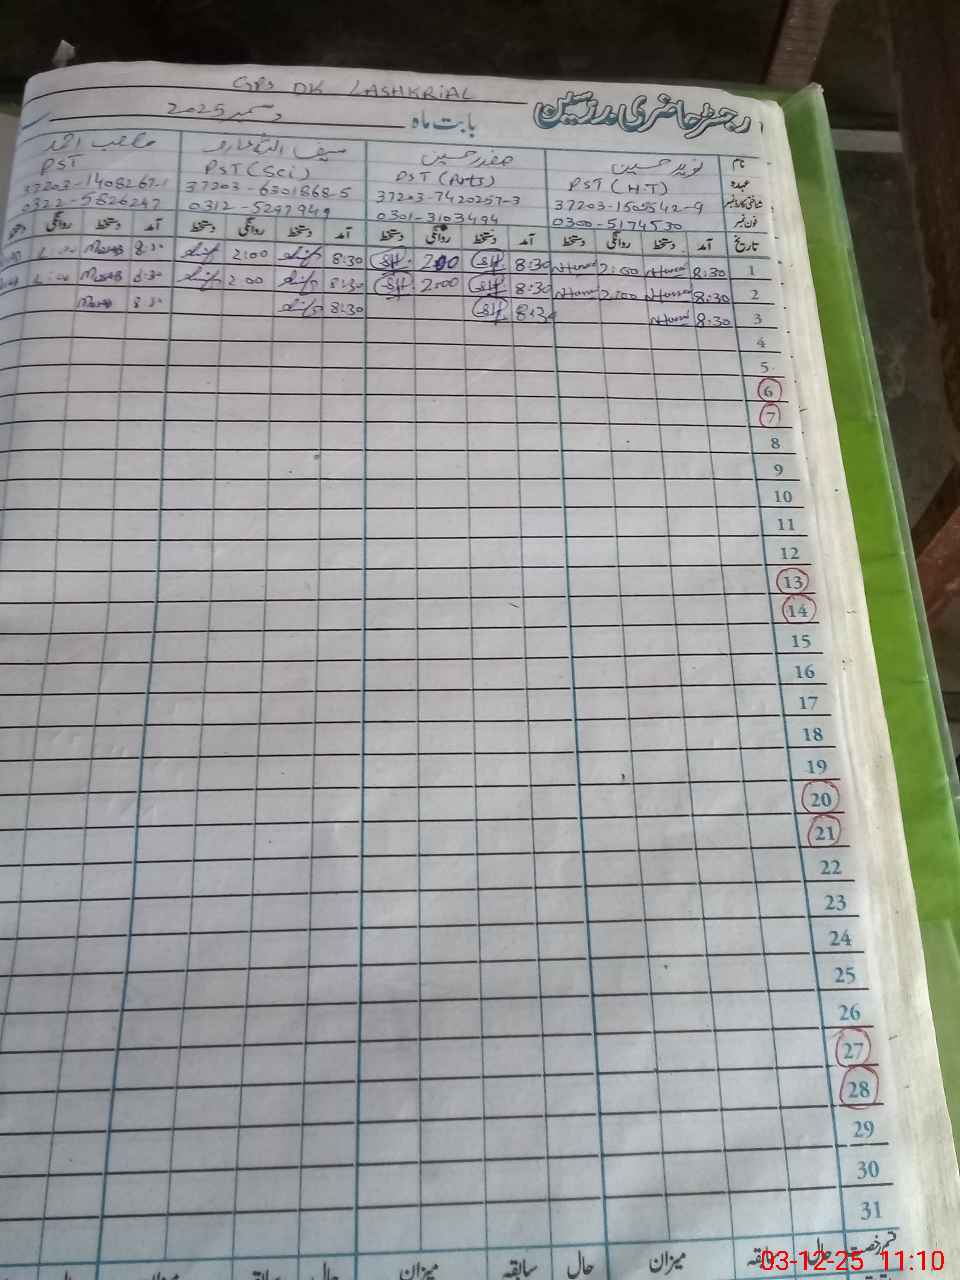 GPS DK LASHKRIAL
رجسٹر حاضری مدرسین
بابت ماہ دسمبر 2025
نام نوید حسین صفدر حسین سیف اللہ
عہدہ PST (HT) PST (Arts) PST (Sci) PST
شناختی کارڈ نمبر 37203-1505542-9 37203-7420257-3 37203-6301868-5 37203-1408267-1
فون نمبر 0300-5174530 0301-3103494 0312-5297949 0322-5826247
تاریخ آمد دستخط روانگی دستخط آمد دستخط روانگی دستخط آمد دستخط روانگی دستخط آمد دستخط روانگی دستخط
1 8:30 2:00 8:30 SH 2:00 SH 8:30 2:00 8:30
2 8:30 2:00 8:30 SH 2:00 SH 8:30 2:00 8:30
3 8:30 8:30 SH 8:30 8:30
4
5
6
7
8
9
10
11
12
13
14
15
16
17
18
19
20
21
22
23
24
25
26
27
28
29
30
31
قسم رخصت حال سابقہ میزان حال سابقہ میزان حال سابقہ میزان حال
03-12-25 11:10